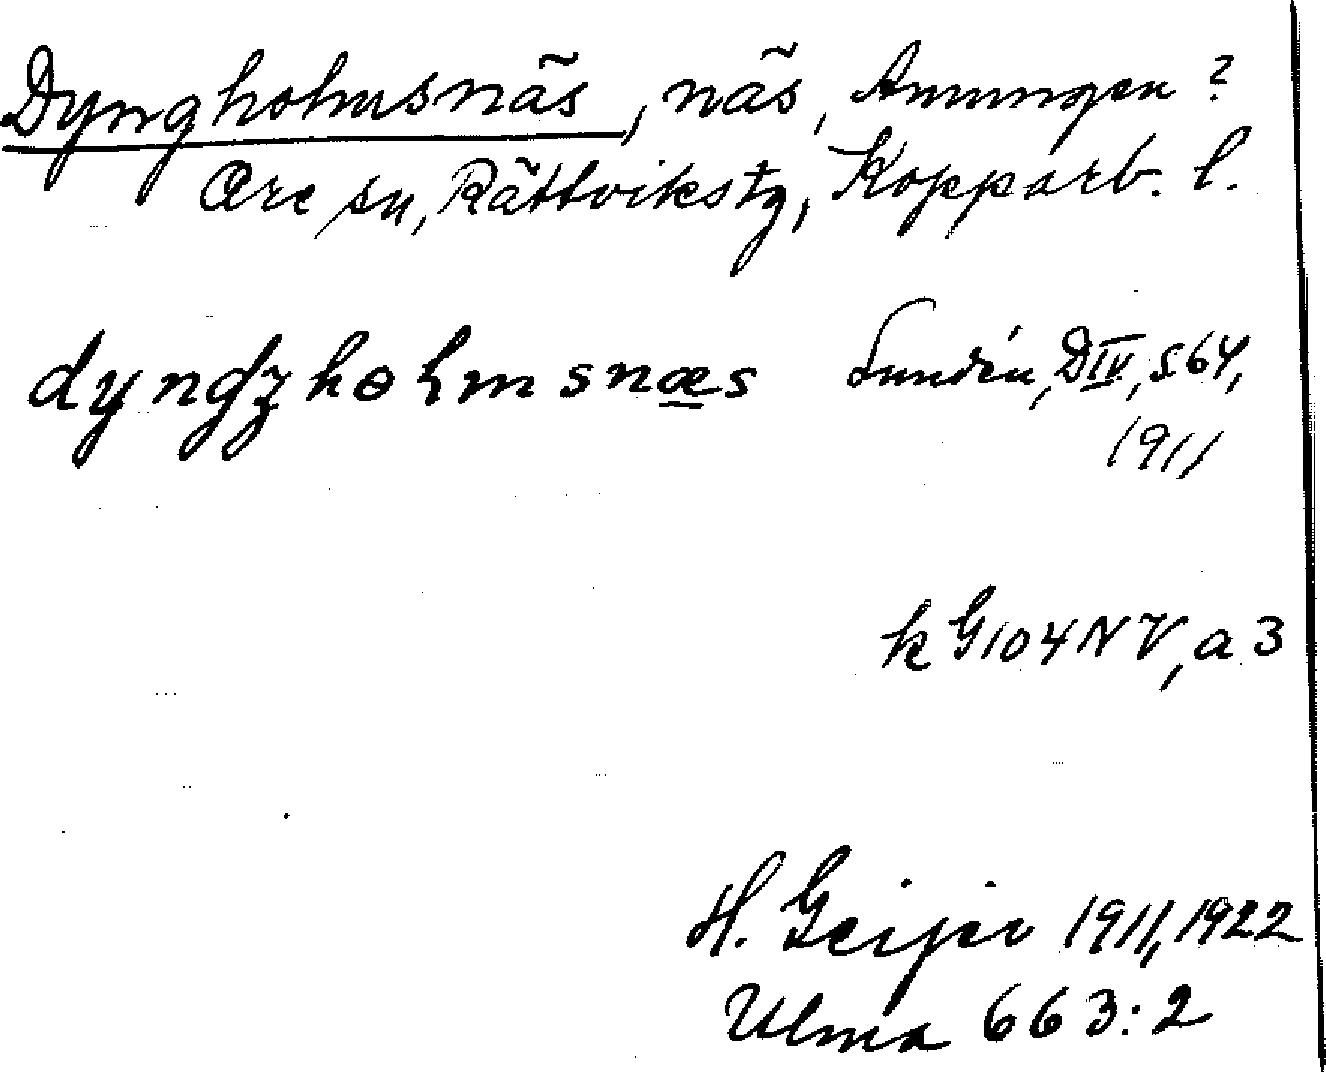 Dyngholmsnäs, näs, Amungen?
Ore sn, Rättvikstg, Kopparb. l.
dyngʒholmsnæs Sundén, D IV, s 64,
1911
k G 104 NV, a 3
H. Geijer 1911, 1922
Ulma 663:2